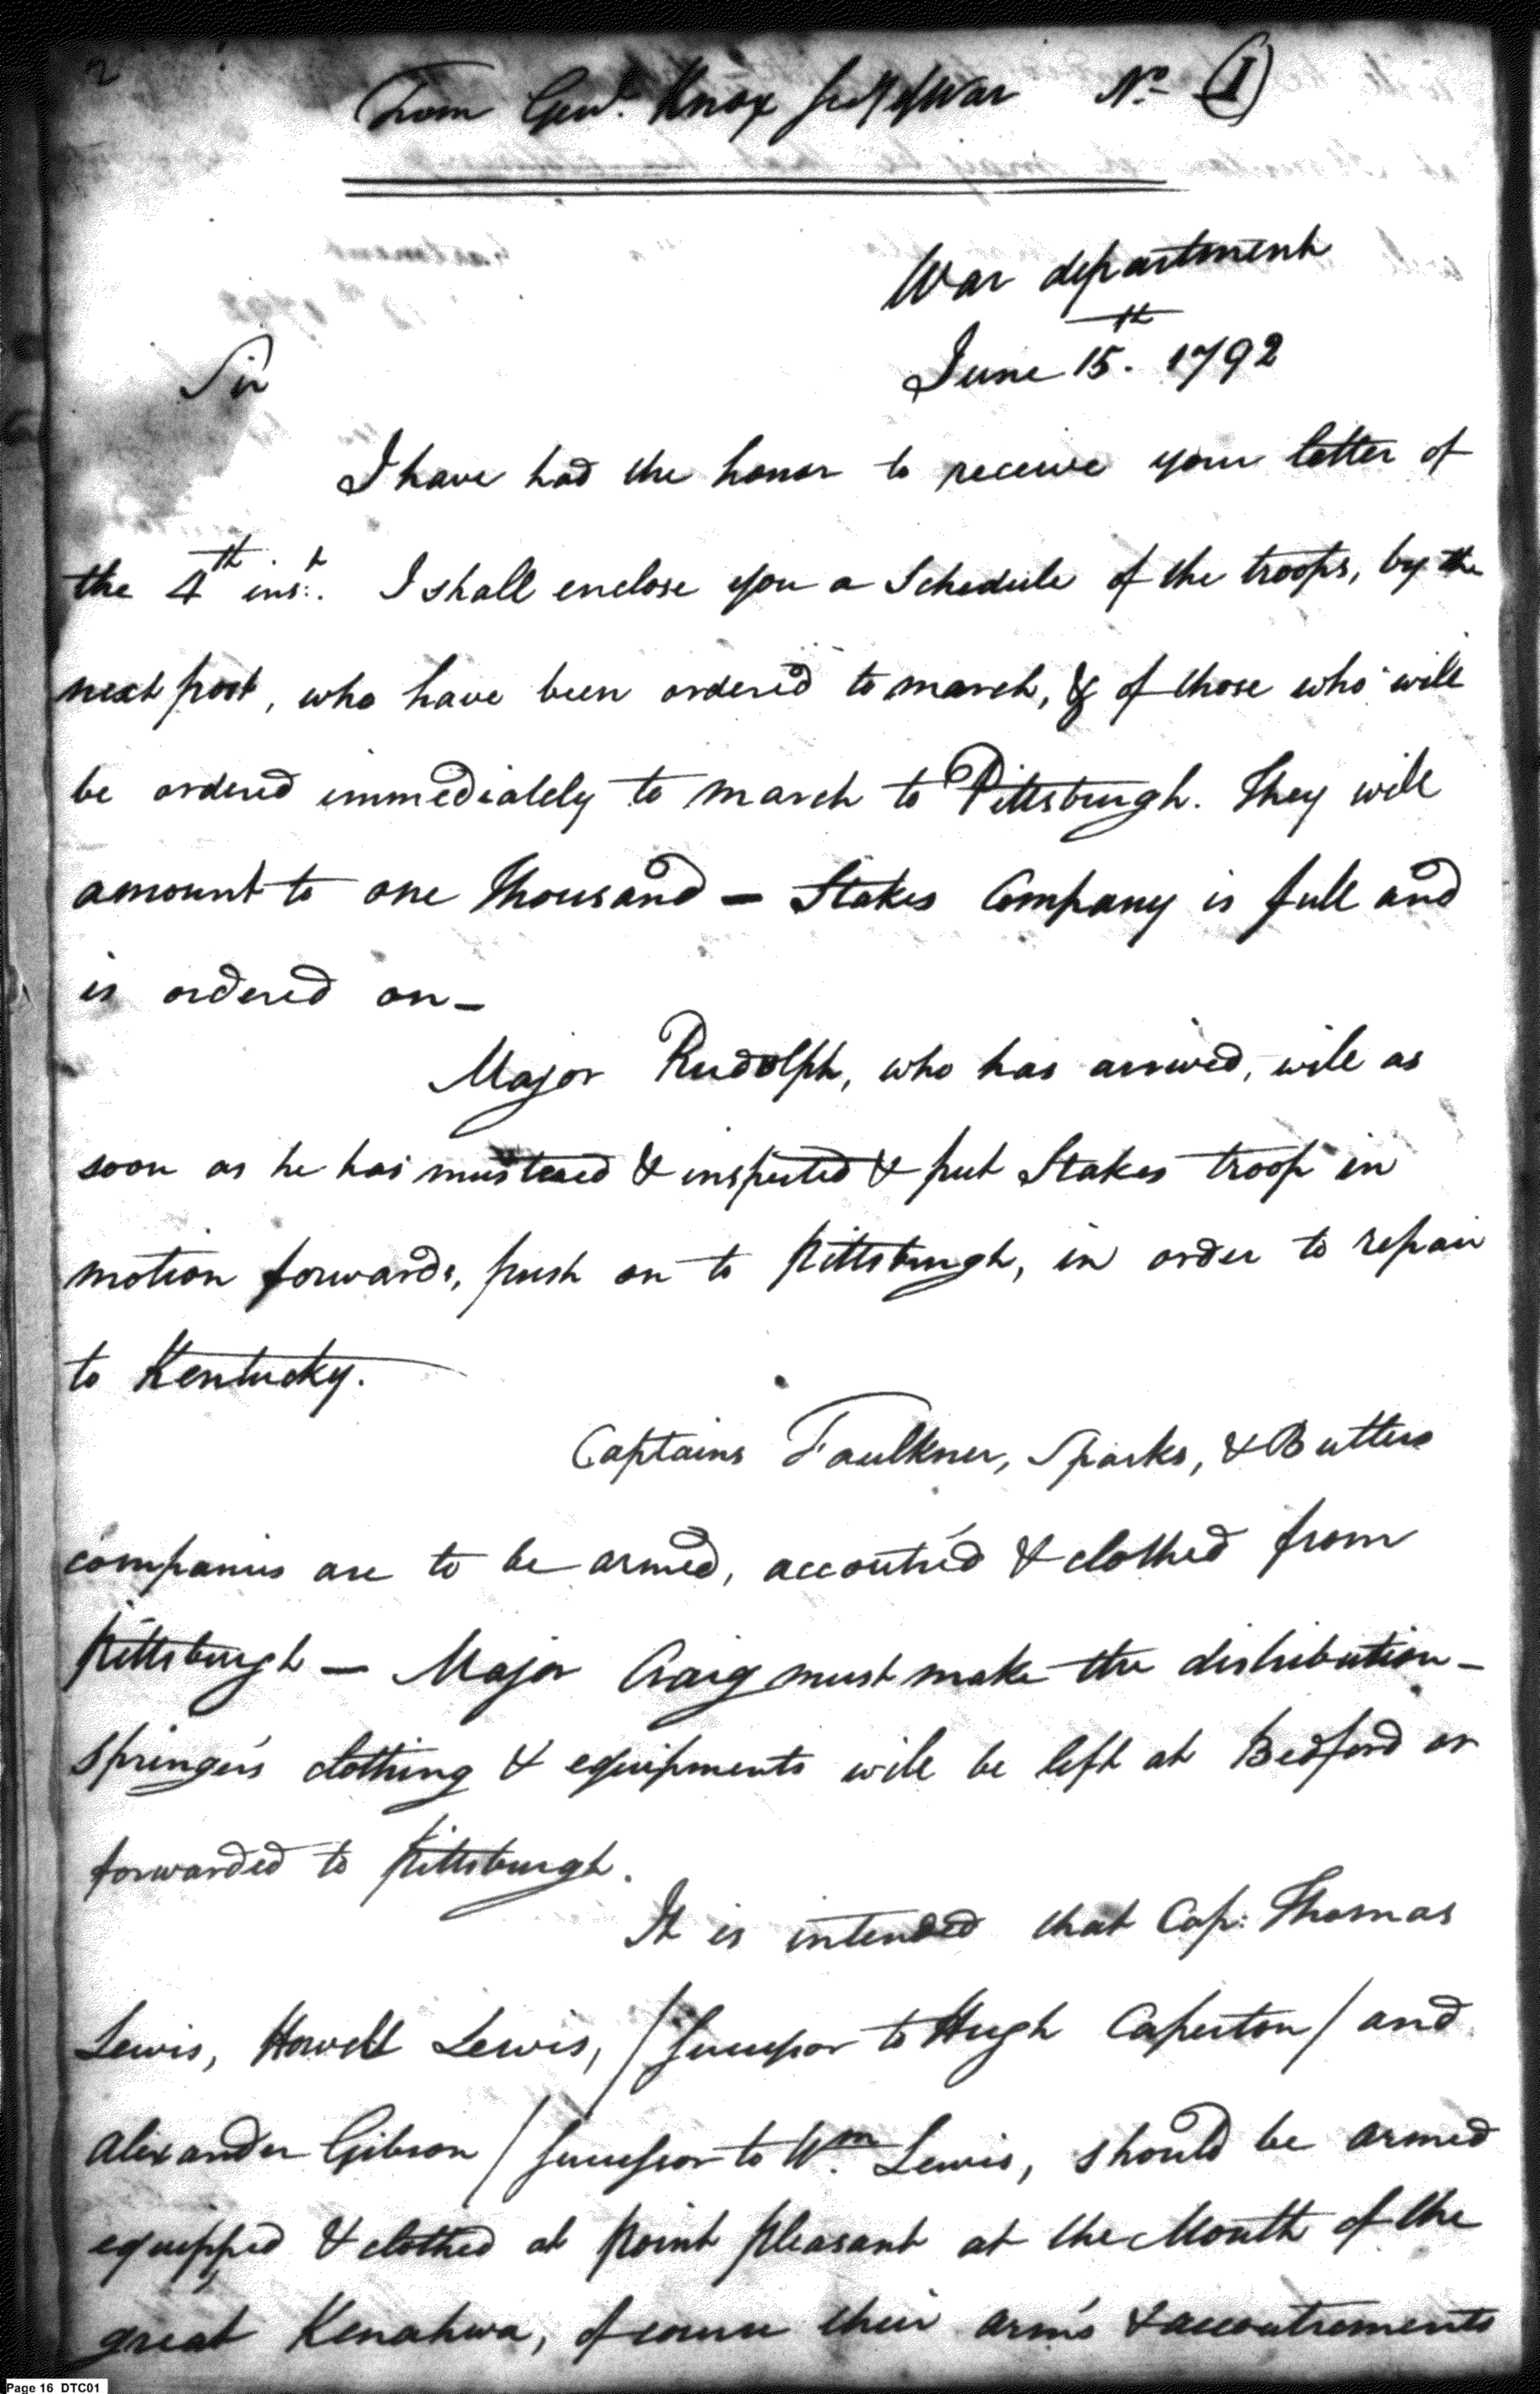 2
From Genl. Knox Secy of War No. (I)
War department
June 15th. 1792
Sir
I have had the honor to receive your letter of
the 4th inst. I shall enclose you a Schedule of the troops, by the
next post, who have been ordered to march, & of those who will
be ordered immediately to march to Pittsburgh. They will
amount to one Thousand — Stakes Company is full and
is ordered on —
Major Rudolph, who has arrived, will as
soon as he has mustered & inspected & put Stakes troop in
motion forwards, push on to Pittsburgh, in order to repair
to Kentucky.
Captains Faulkner, Sparks, & Butlers
companies are to be armed, accoutred & clothed from
Pittsburgh — Major Craig must make the distribution —
Springers clothing & equipments will be left at Bedford or
forwarded to Pittsburgh.
It is intended that Cap: Thomas
Lewis, Howell Lewis, / Successor to Hugh Caperton / and
Alexander Gibson / Successor to Wm. Lewis, should be armed
equipped & clothed at Point Pleasant at the Mouth of the
great Kenahwa, of course their arms & accoutrements
Page 16 DTC01